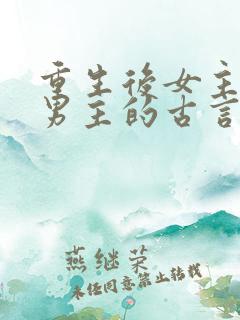 重生後女主
男主的古言
燕继荣
未经同意禁止转载